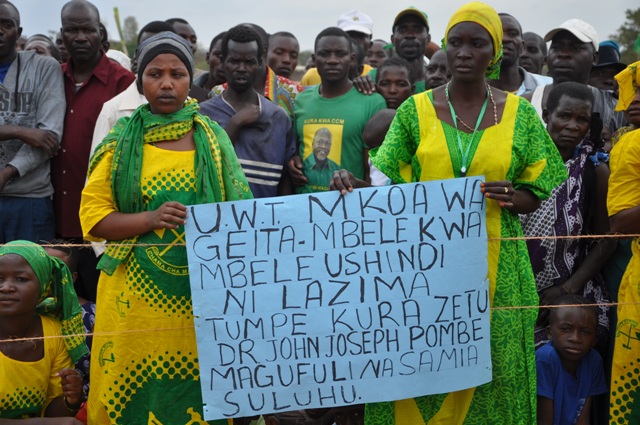 U.W.T. MKOA WA
GEITA-MBELE KWA
MBELE USHINDI
NI LAZIMA
TUMPE KURA ZETU
DR JOHN JOSEPH POMBE
MAGUFULI NA SAMIA
SULUHU.
KURA KWA
CCM